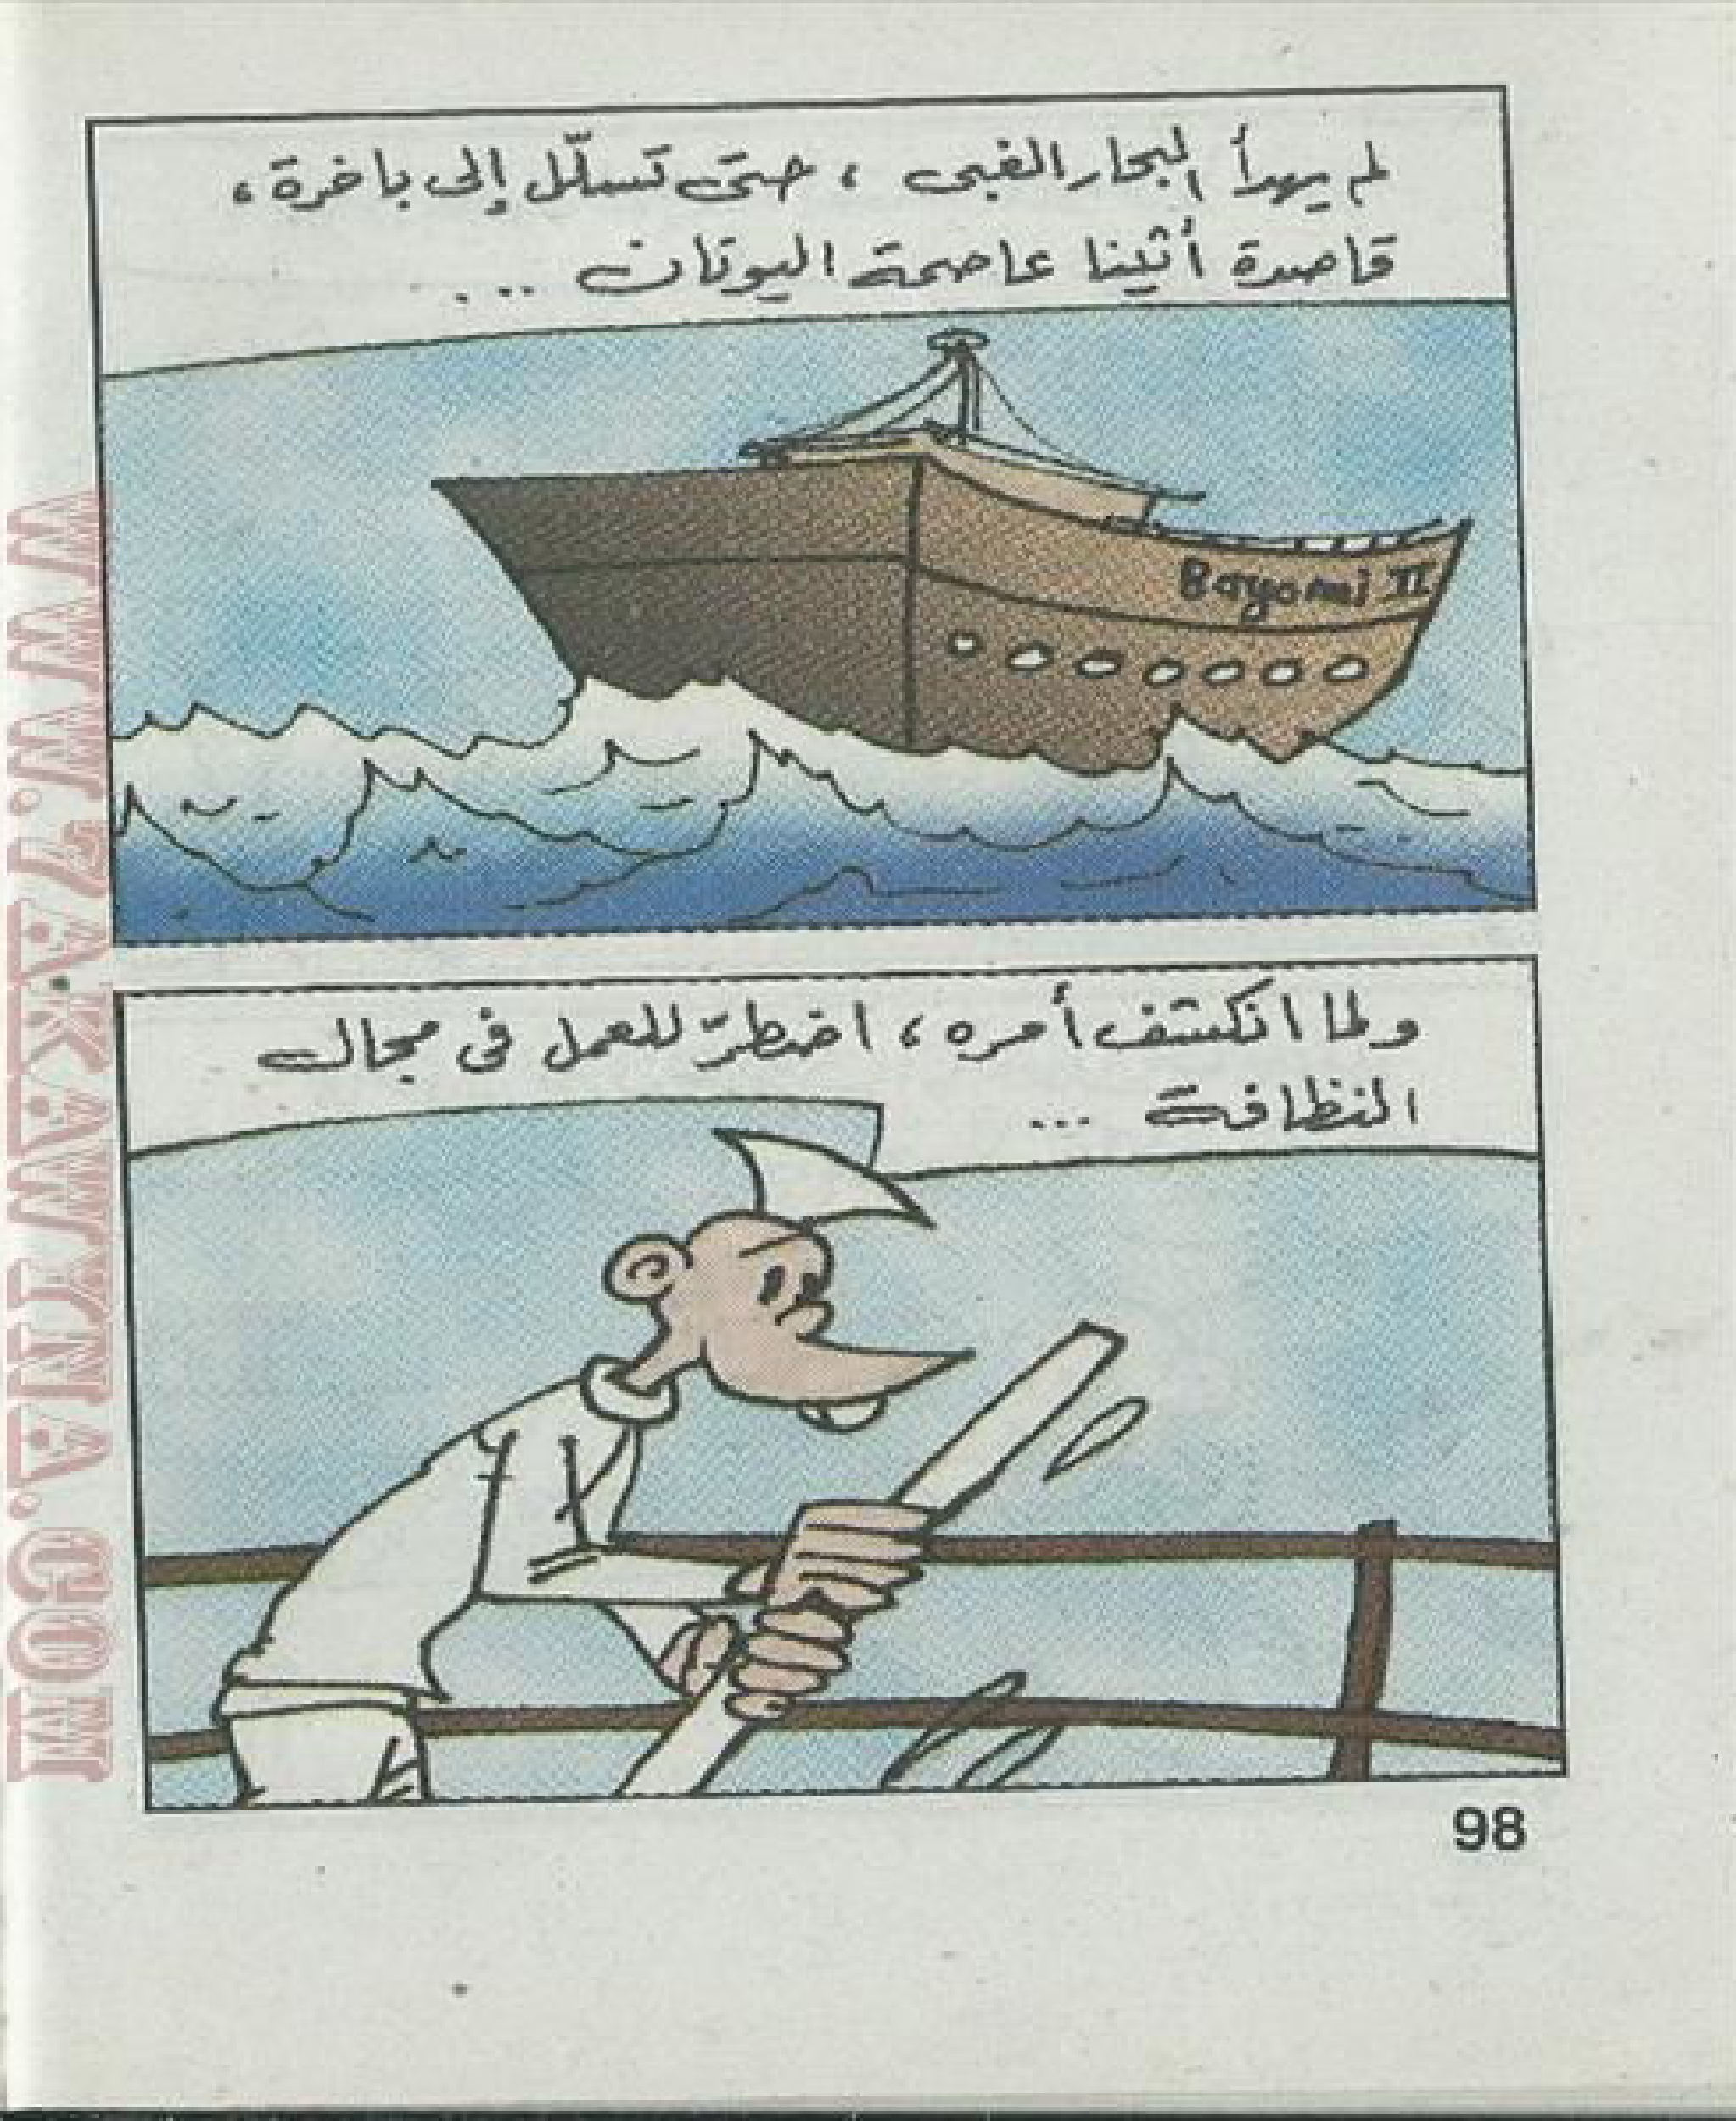 لم يهدأ البحار الغبى ، حتى تسلّل إلى باخرة ،
قاصدة أثينا عاصمة اليونان ...
Bayomi II
ولما انكشف أمره ، اضطرّ للعمل فى مجال
النظافة ...
98
WWW.ZAKAWINA.COM